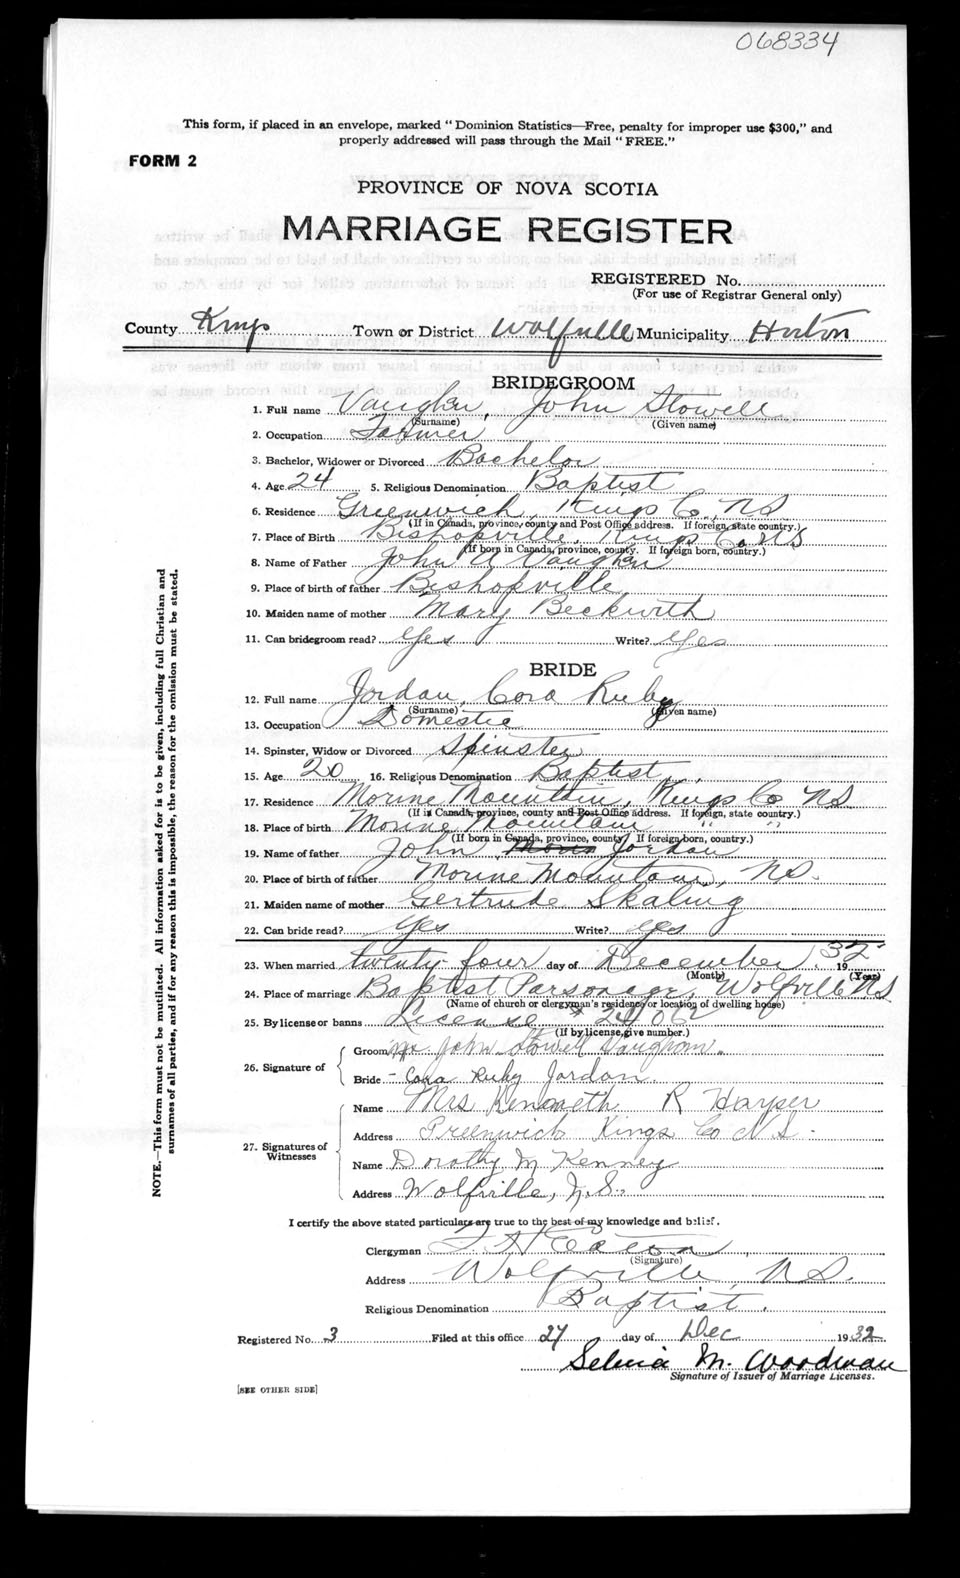 068334
This form, if placed in an envelope, marked "Dominion Statistics—Free, penalty for improper use $300," and
properly addressed will pass through the Mail "FREE."
FORM 2
PROVINCE OF NOVA SCOTIA
MARRIAGE REGISTER
REGISTERED No.
(For use of Registrar General only)
County Kings Town or District Wolfville Municipality Horton
BRIDEGROOM
1. Full name Vaughn, John Stowell
(Surname) (Given name)
2. Occupation Farmer
3. Bachelor, Widower or Divorced Bachelor
4. Age 24 5. Religious Denomination Baptist
6. Residence Greenwich, Kings Co., NS
(If in Canada, province, county and Post Office address. If foreign, state country.)
7. Place of Birth Bishopville, Kings Co. NS
(If born in Canada, province, county. If foreign born, country.)
8. Name of Father John A Vaughn
9. Place of birth of father Bishopville
10. Maiden name of mother Mary Beckwith
11. Can bridegroom read? Yes Write? Yes
BRIDE
12. Full name Jordan, Cora Ruby
(Surname) (Given name)
13. Occupation Domestic
14. Spinster, Widow or Divorced Spinster
15. Age 20 16. Religious Denomination Baptist
17. Residence Morine Mountain, Kings Co NS
(If in Canada, province, county and Post Office address. If foreign, state country.)
18. Place of birth Morine Mountain " "
(If born in Canada, province, county. If foreign born, country.)
19. Name of father John Jordan
20. Place of birth of father Morine Mountain, NS.
21. Maiden name of mother Gertrude Skaling
22. Can bride read? Yes Write? Yes
23. When married twenty four day of December, 1932
(Month) (Year)
24. Place of marriage Baptist Parsonage, Wolfville NS
(Name of church or clergyman's residence or location of dwelling house)
25. By license or banns License # 24062
(If by license, give number.)
26. Signature of
Groom Mr John Stowell Vaughan.
Bride - Cora Ruby Jordan.
27. Signatures of Witnesses
Name Mrs Kenneth R Harper
Address Greenwich Kings Co N S.
Name Dorothy M Kenney
Address Wolfville, N.S.
I certify the above stated particulars are true to the best of my knowledge and belief.
Clergyman F H Eaton
(Signature)
Address Wolfville, NS.
Religious Denomination Baptist.
Registered No. 3 Filed at this office 27 day of Dec 1932
M. Woodman
Signature of Issuer of Marriage Licenses.
[SEE OTHER SIDE]
NOTE.—This form must not be mutilated. All information asked for is to be given, including full Christian and
surnames of all parties, and if for any reason this is impossible, the reason for the omission must be stated.